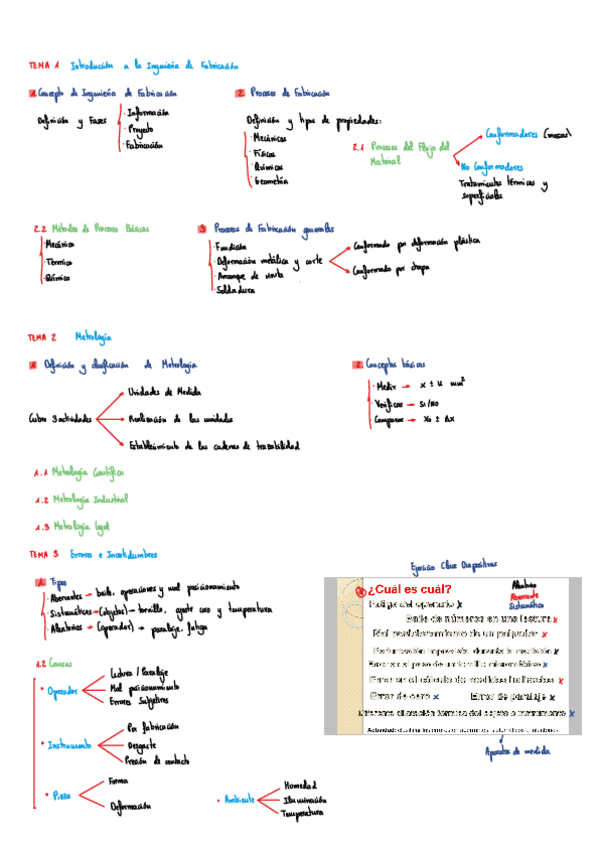 TEMA 1 Introducción a la Ingeniería de Fabricación
1 Concepto de Ingeniería de Fabricación
Definición y Fases
· Información
· Proyecto
· Fabricación
2 Procesos de Fabricación
Definición y tipos de propiedades:
· Mecánicas
· Físicas
· Químicas
· Geometría
2.1 Procesos del Flujo del Material
Conformadores
No Conformadores
Tratamientos térmicos y
superficiales
2.2 Métodos de Procesos Básicos
· Mecánico
· Térmico
· Químico
3 Procesos de Fabricación generales
· Fundición
· Deformación metálica y corte
· Arranque de viruta
· Soldadura
Conformado por deformación plástica
Conformado por chapa
TEMA 2 Metrología
1 Definición y clasificación de Metrología
Cubre 3 actividades
Unidades de Medida
Realización de las unidades
Establecimiento de las cadenas de trazabilidad
2 Conceptos básicos
· Medir → x ± u mm²
· Verificar → si/no
· Comparar → x₀ ± Δx
1.1 Metrología Científica
1.2 Metrología Industrial
1.3 Metrología Legal
TEMA 3 Errores e Incertidumbres
1 Tipos
· Aberrantes → baile, operaciones y mal posicionamiento
· Sistemáticos → (objetos) → tornillo, ajuste cero y temperatura
· Aleatorios → (operador) → paralaje, fatiga
1.2 Causas
· Operador
Lectura / Paralaje
Mal posicionamiento
Errores Subjetivos
· Instrumento
Por fabricación
Desgaste
Presión de contacto
· Pieza
Forma
Deformación
· Ambiente
Humedad
Iluminación
Temperatura
Ejercicio Clase Diapositivas
¿Cuál es cuál?
Aleatorio
Aberrante
Sistemático
Fatiga del operario x
Baile de números en una lectura x
Mal posicionamiento de un palpador x
Perturbación imprevista durante la medición x
Error en el paso de un tornillo micrométrico x
Error en el cálculo de medidas indirectas x
Error de cero x
Error de paralaje x
Diferente dilatación térmica del sujeto o instrumento x
Aparatos de medida